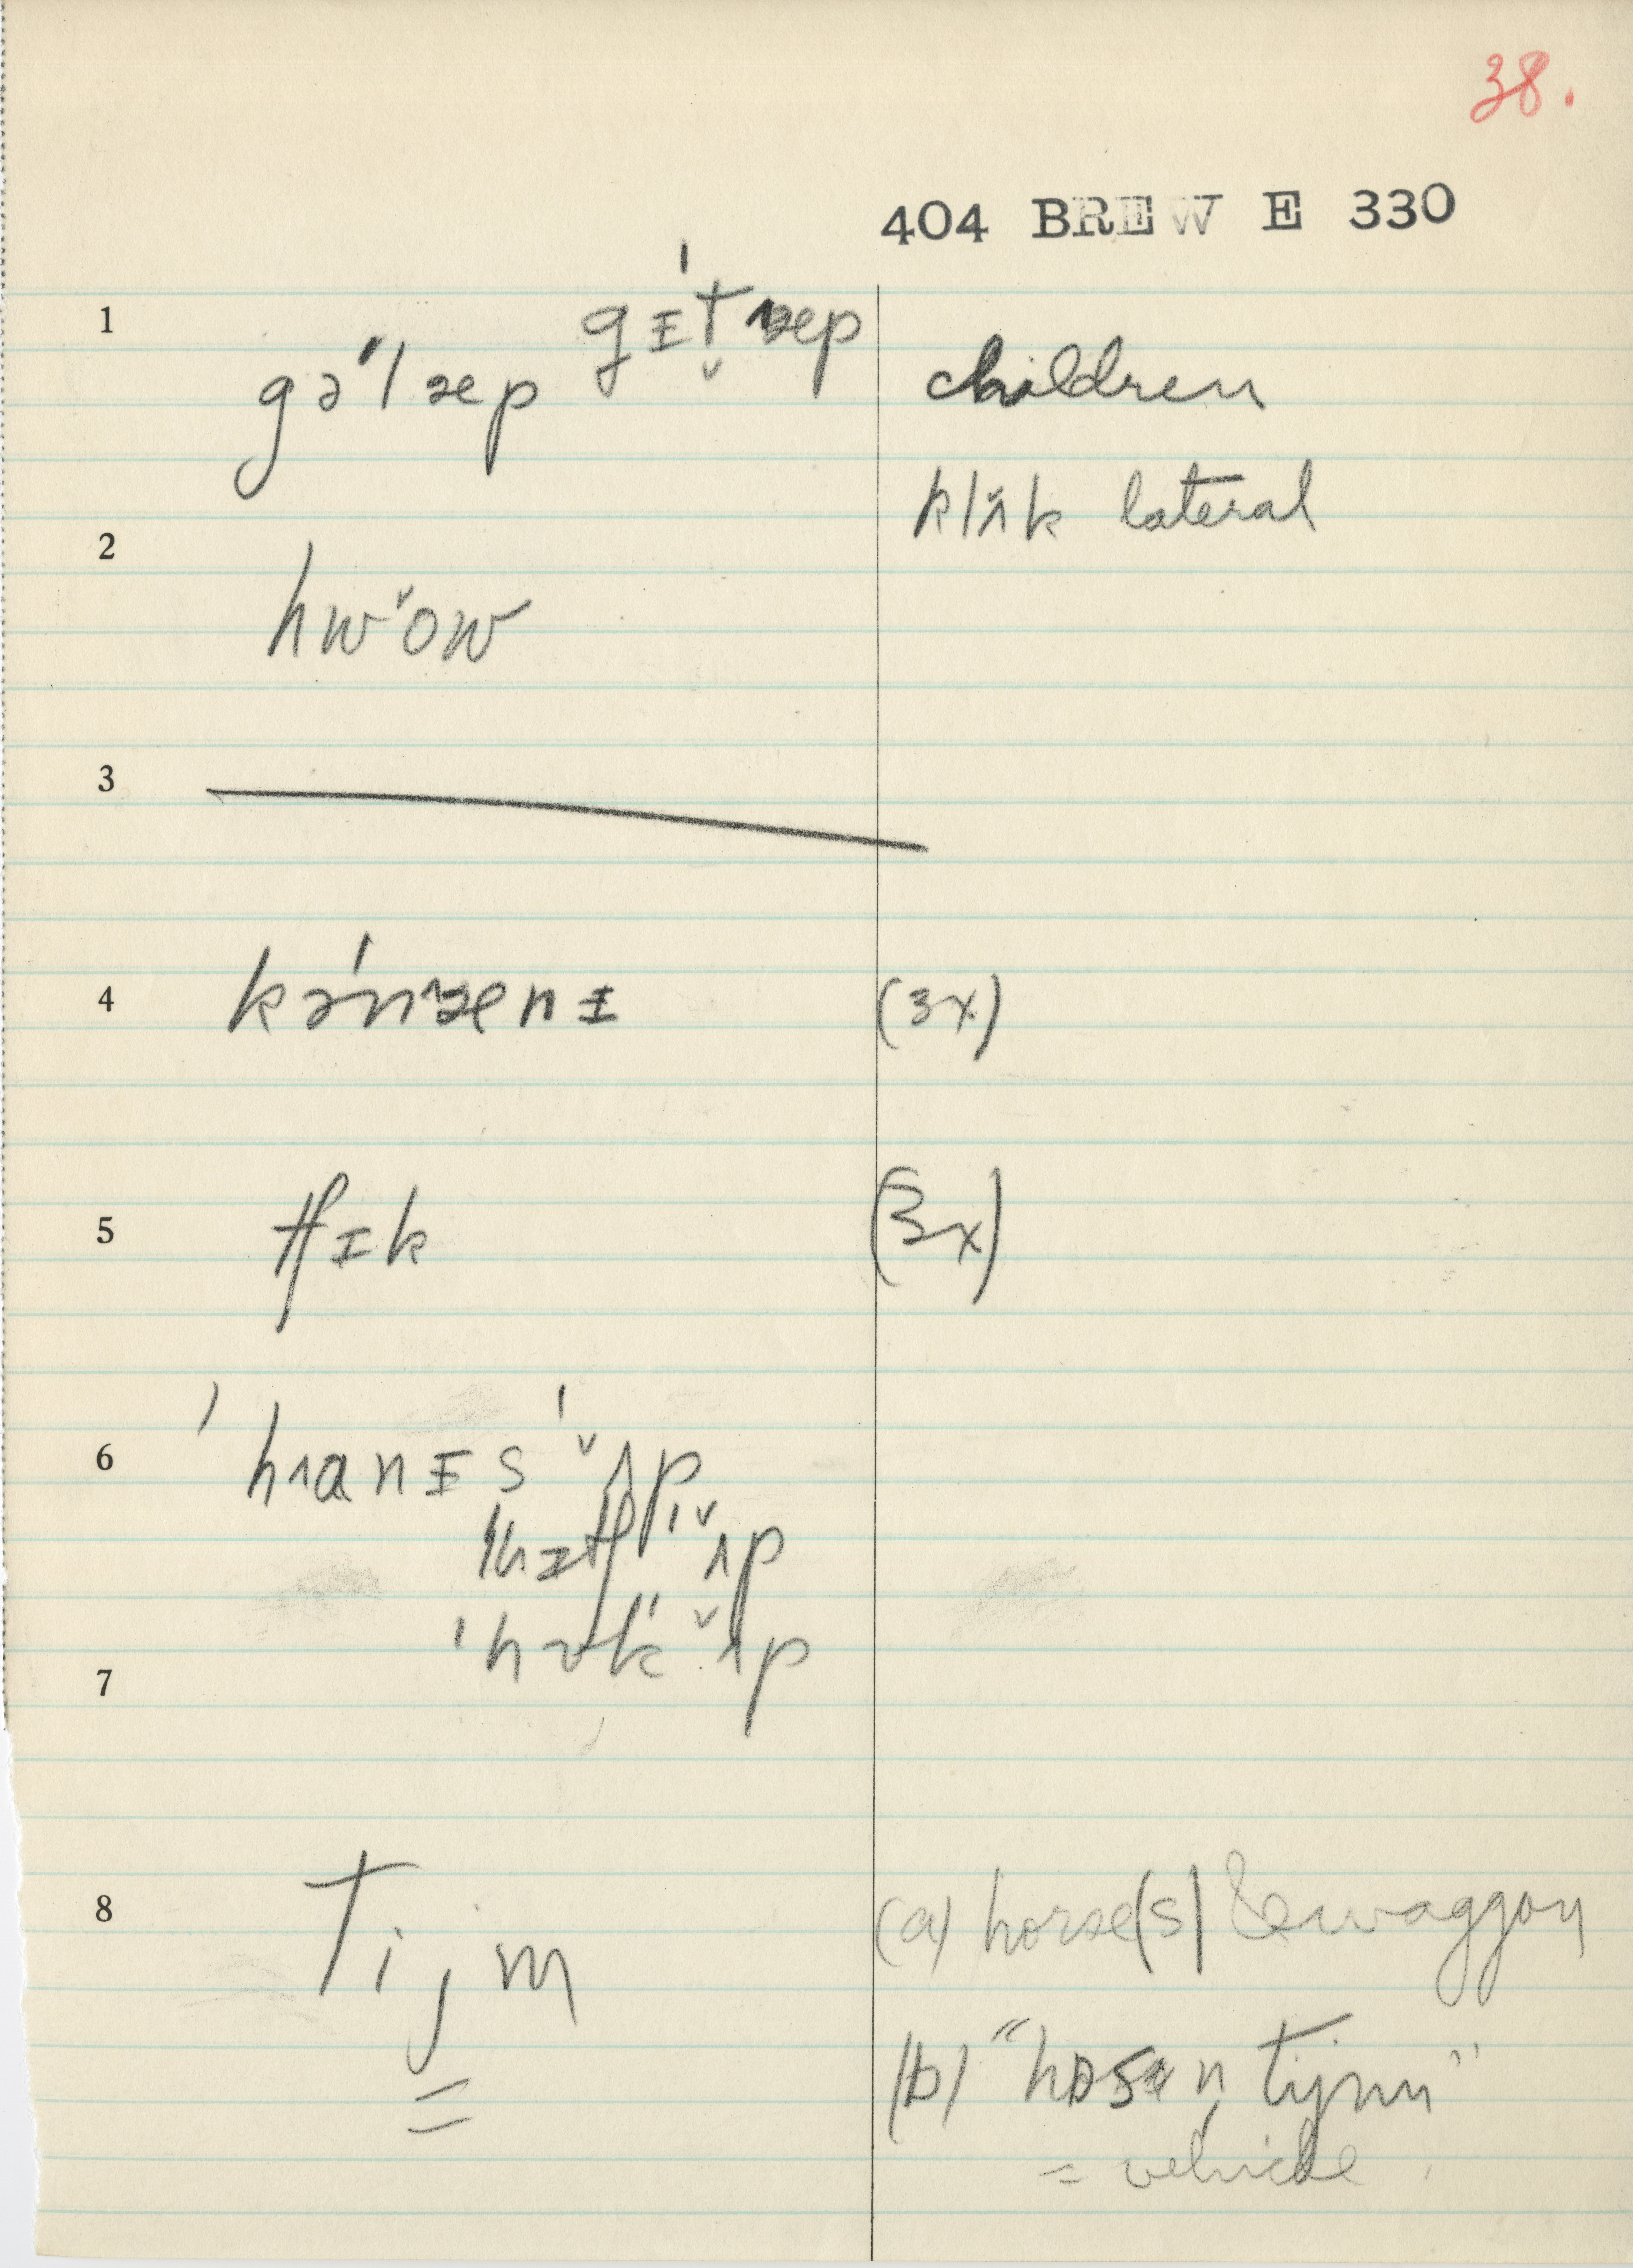 38.
404 BREW E 330
1 gɪ́t̬ ɐep
gə'l ɐep children
klʌ̌k lateral
2 hwˇow
3
4 kə́nɐenɪ (3x)
5 tʃɪk (3x)
6 'hɹanɪs 'ˇʌp
'hɪtʃ 'ˇʌp
'huk 'ˇʌp
7
8 tijm (a) horse(s) & waggon
(b) "hɒsən tijm"
= vehicle